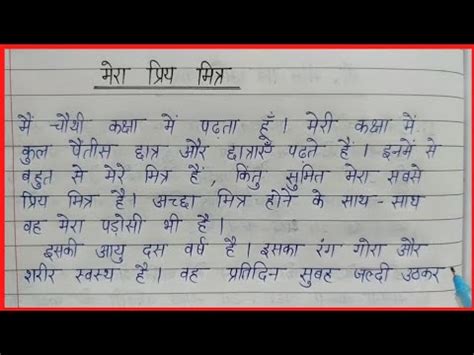 मेरा प्रिय मित्र
मैं चौथी कक्षा में पढ़ता हूँ। मेरी कक्षा में
कुल पैंतीस छात्र और छात्राएं पढ़ते हैं। इनमें से
बहुत से मेरे मित्र हैं, किंतु सुमित मेरा सबसे
प्रिय मित्र है। अच्छा मित्र होने के साथ-साथ
वह मेरा पड़ोसी भी है।
इसकी आयु दस वर्ष है। इसका रंग गोरा और
शरीर स्वस्थ है। वह प्रतिदिन सुबह जल्दी उठकर